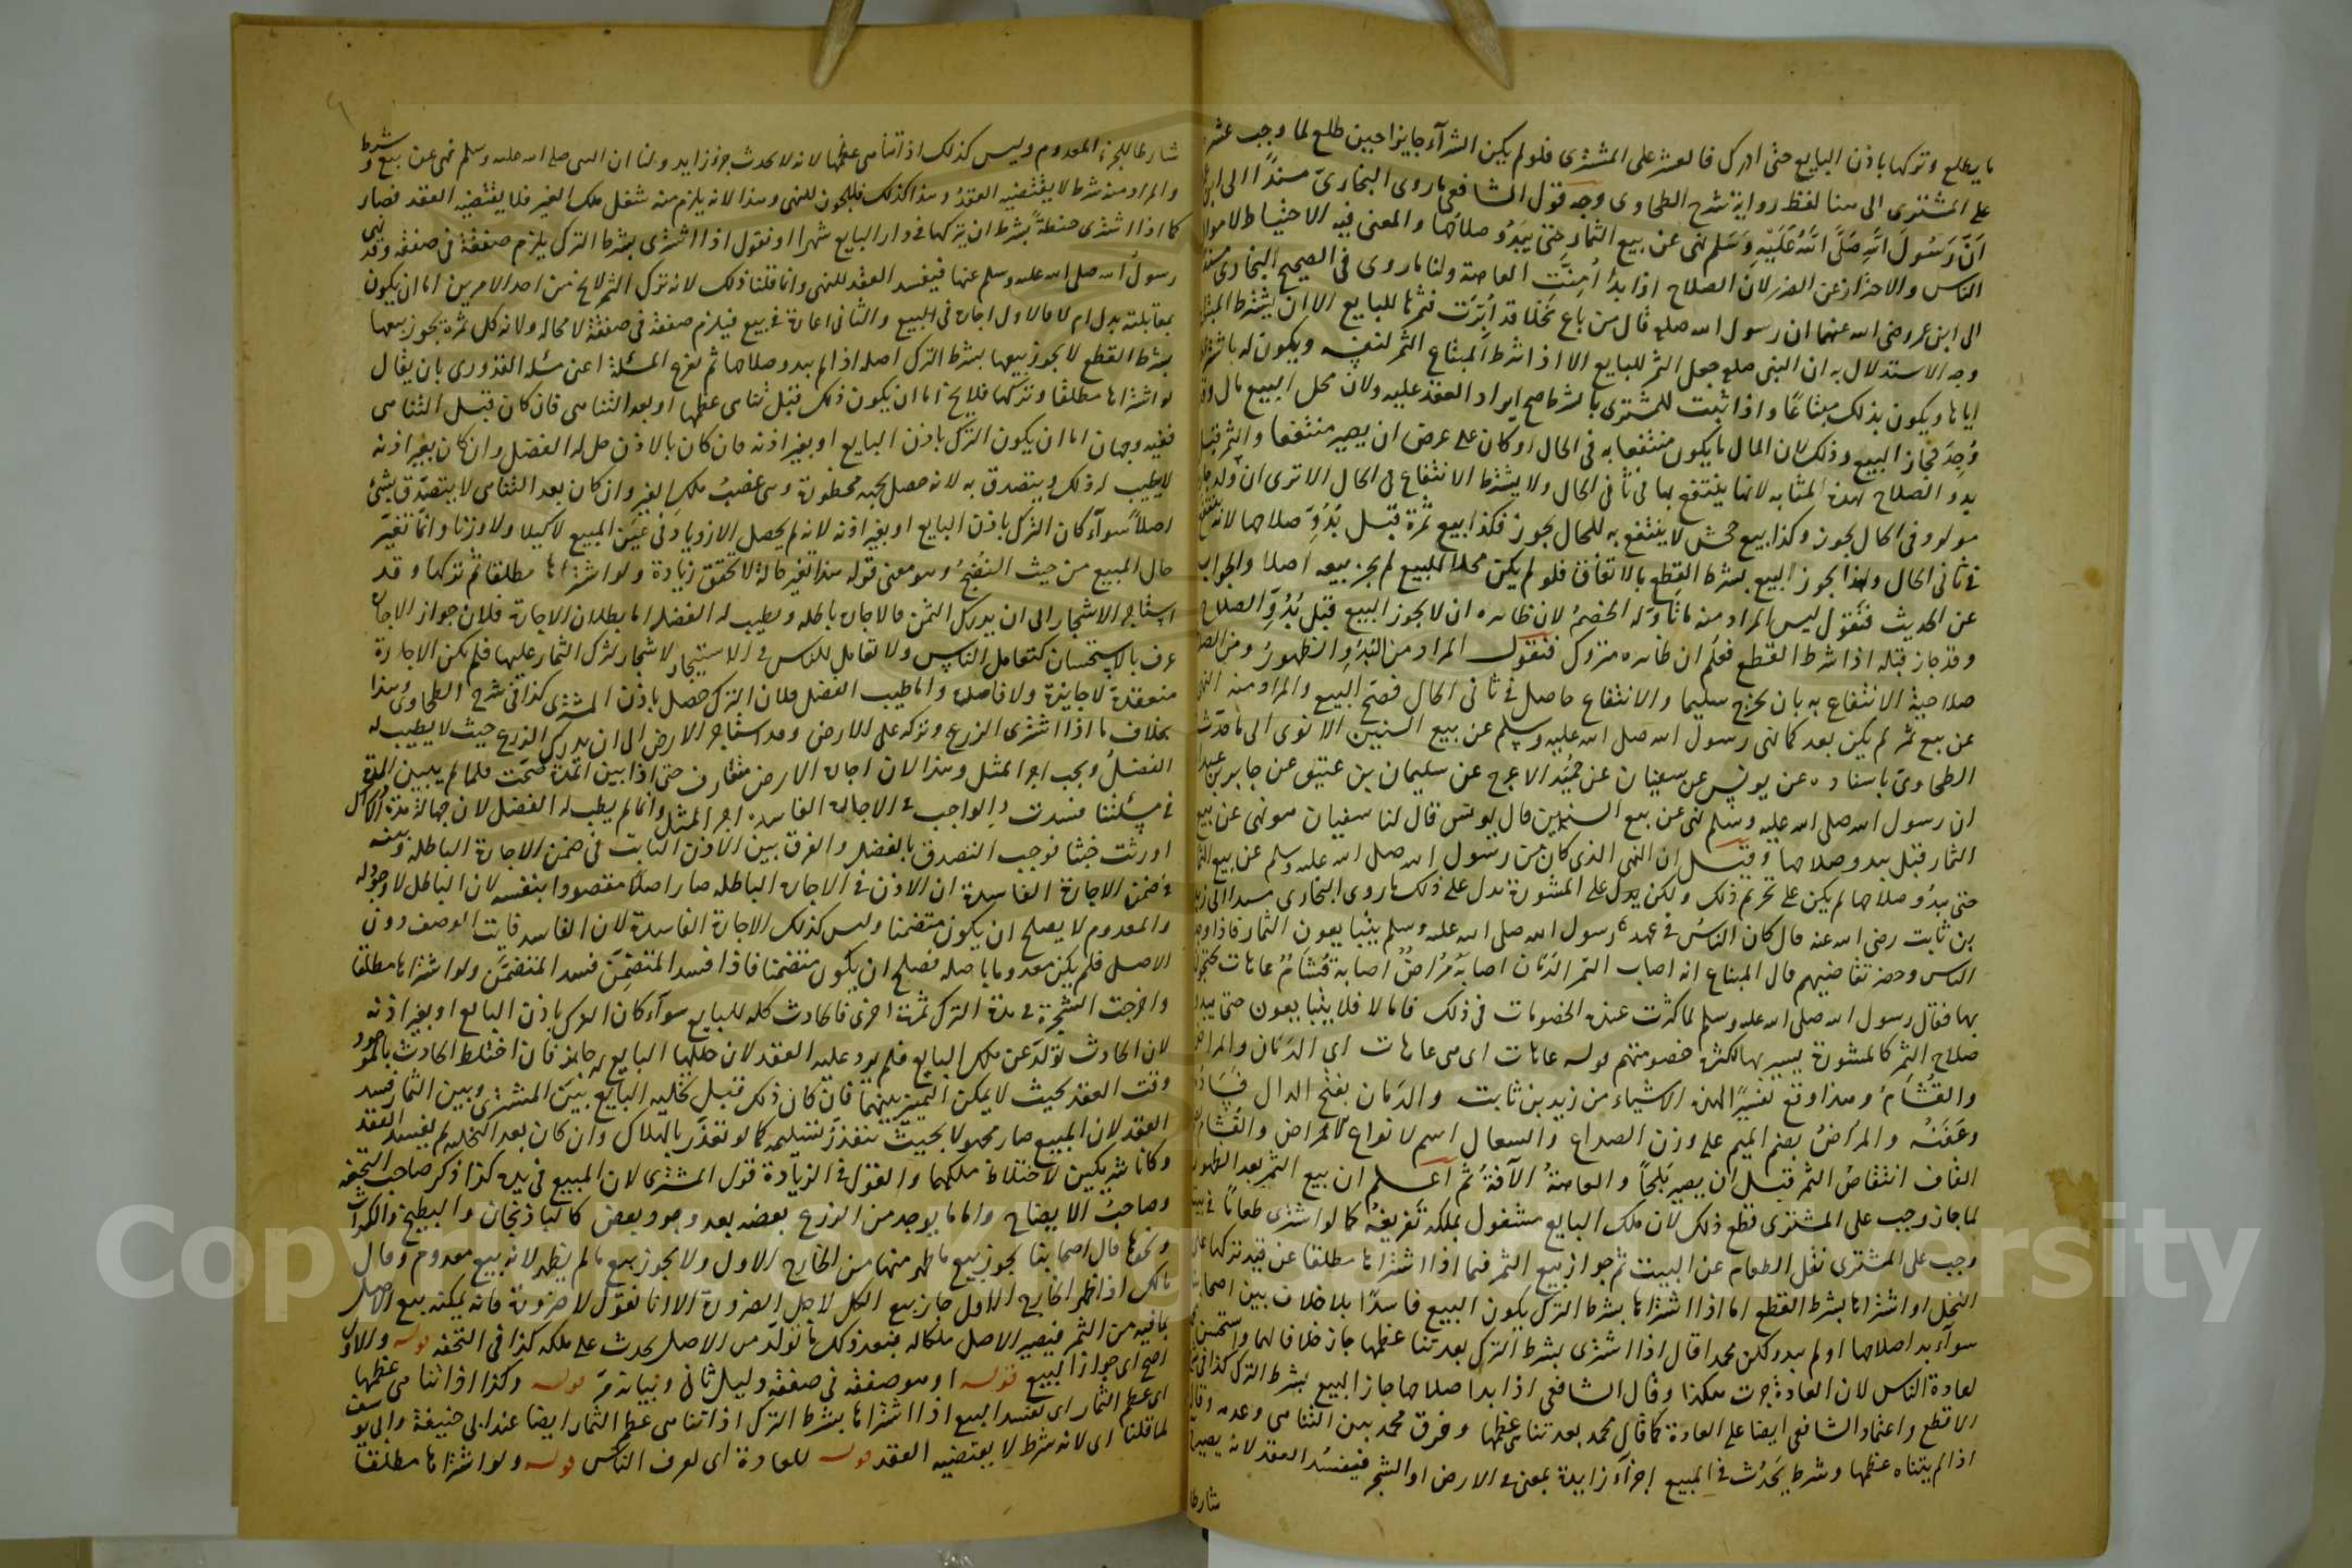 ما يطلع وتركها باذن البايع حتى ادرك فالعشر على المشترى فلو لم يكن الشرآء جايزا حين طلع لما وجب عشره
على المشترى الى هنا لفظ رواية شرح الطحاوى وجه قول الشافعى ما روى البخارىّ مسندًا الى ابن عمر
اَنَّ رَسُولَ اللّهِ صَلَّى اللّهُ عَلَيْهِ وَسَلم نهى عن بيع الثمار حتى يَبْدُو صلاحُها والمعنى فيه الاحتياط لاموال
الناس والاحتراز عن الضرر لان الصلاح اذا بدأ اُمِنَتِ العاهة ولنا ما روى فى الصحيح البخارى مسندا
الى ابن عمر رضى الله عنهما ان رسول الله صلعم قال من باع نخلا قد اُبِّرَت فثمرها للبايع الا ان يشترط المبتاع
وجه الاستدلال به ان النبى صلعم جعل الثمر للبايع الا اذا شرط المبتاع الثمر لنفسه ويكون له باشتراطه
اياها ويكون بذلك مبتاعًا واذا ثبت للمشترى بالشرط صح ايراد العقد عليه ولان محل البيع مال وقد
وُجِدَ فجاز البيع وذلك لان المال ما يكون منتفعا به فى الحال او كان على عرض ان يصير منتفعا والثمر قبل
بدو الصلاح بهذه المثابه لانها ينتفع بها فى ثانى الحال ولا يشترط الانتفاع فى الحال الا ترى ان ولد جارية
مولود فى الحال يجوز وكذا بيع جحش لا ينتفع به للحال يجوز فكذا بيع ثمرة قبل بُدُوِّ صلاحها لانه ينتفع
فى ثانى الحال ولهذا يجوز البيع بشرط القطع بالاتفاق فلو لم يكن محلا للبيع لم يجز بيعه اصلا والجواب
عن الحديث فنقول ليس المراد منه ما تأوّله الخصمُ لان ظاهره ان لا يجوز البيع قبل بُدُوِّ الصلاح
وقد جاز قبله اذا شرط القطع فعلم ان ظاهره متروك فنقول المراد من البُدُوِّ الظهورُ ومن الصلاح
صلاحية الانتفاع به بان يخرج سليما والانتفاع حاصل فى ثانى الحال فصَحّ البيع والمراد منه النهى
عن بيع ثمر لم يكن بعد كما نهى رسول الله صلى الله عليه وسلم عن بيع السنين الا ترى الى ما حدّث
الطحاوىّ باسناده عن يونس عن سفيان عن حُمَيْد الاعرج عن سليمان بن عتيق عن جابر بن عبد الله
ان رسول الله صلى الله عليه وسلم نهى عن بيع السنين قال يونس قال لنا سفيان هو نهى عن بيع
الثمار قبل بدو صلاحها وقيل ان النهى الذى كان من رسول الله صلى الله عليه وسلم عن بيع الثمار
حتى يبدُوَ صلاحها لم يكن على تحريم ذلك ولكن يدل على المشورة يدل على ذلك ما روى البخارى مسندا الى زيد
بن ثابت رضى الله عنه قال كان الناسُ فى عهد رسول الله صلى الله عليه وسلم يتبايعون الثمار فاذا وجد
الناس وحضر تقاضيهم قال المبتاع انه اصاب الثمر الدُمان اصابهُ مُرَاضٌ اصابه قُشَامٌ عاهات يحتجون
بها فقال رسول الله صلى الله عليه وسلم لما كثرت عنده الخصومات فى ذلك فاما لا فلا يتبايعون حتى يبدو
صلاح الثمر كالمشورة يسير بها لكثرة خصومتهم قوله عاهات اى هى عاهات اى الدَمَان والمراض
والقُشَامُ وهذا وقع تفسيرًا لهذه الاشياء من زيد بن ثابت والدَمان بفتح الدال فساده
وعَفَنُه والمراضُ بضم الميم على وزن الصداع والسعال اسم لانواع الامراض والقُشَام بضم
القاف انتقاصُ الثمر قبل ان يصير بَلَحاً والعاهةُ الآفةُ ثم اعلم ان بيع الثمر بعد الظهور
لما جاز وجب على المشترى قطع ذلك لان ملك البايع مشغول بملكه تفريغه كما لو اشترى طعامًا فى بيت
وجب على المشترى نقل الطعام عن البيت ثم جواز بيع الثمر فيما اذا اشتراها مطلقا عن قيد تركها على
النخل او اشتراها بشرط القطع اما اذا اشتراها بشرط الترك يكون البيع فاسدًا بلا خلاف بين اصحابنا
سوآء بدا صلاحها او لم يبد ولكن محمدا قال اذا اشترى بشرط الترك بعد تناهى عظمها جاز خلافا لهما واستحسن
لعادة الناس لان العادة جرت هكذا وقال الشافعى اذا بدا صلاحها جاز البيع بشرط الترك كذا فى
الاقطع واعتماد الشافعى ايضا على العادة كما قال محمد بعد تناهى عظمها وفرق محمد بين التناهى وعدمه وقال
اذا لم يتناه عظمها وشرط يَحْدُث فى المبيع اجزآء زايدة بمعنى فى الارض او الشجر فيفسُد العقد لانه يصير
شارطا
شارطا للجزء المعدوم وليس كذلك اذا تناهى عظمها لانه لا يحدث جزء زايد ولنا ان النبى صلى الله عليه وسلم نهى عن بيع وشرط
والمراد منه شرط لا يقتضيه العقدُ وهذا كذلك فلا يجوز للنهى وهذا لانه يلزم منه شغل ملك الغير فلا يقتضيه العقد فصار
كما اذا اشترى حنطةً بشرط ان يتركها فى دار البايع شهرا او نقول اذا اشترى بشرط الترك يلزم صفقة فى صفقه وقد نهى
رسول الله صلى الله عليه وسلم عنها فيفسد العقد للنهى وانما قلنا ذلك لانه ترك الثمر لا يخ من احد الامرين اما ان يكون
بمقابلته بدل ام لا فالاول اجارة فى البيع والثانى اعارة فى بيع فيلزم صفقة فى صفقة لا محالة ولانه كل ثمرة يجوز بيعها
بشرط القطع لا يجوز بيعها بشرط الترك اصله اذا لم يبد وصلاحها ثم نفرع المسئلة اعنى مسئلة القدورى بان يقال
لو اشتراها مطلقا وتركها فلا يخ اما ان يكون ذلك قبل تناهى عظمها او بعد التناهى فان كان قبل التناهى
ففيه وجهان اما ان يكون الترك باذن البايع او بغير اذنه فان كان بالاذن حل له الفضل وان كان بغير اذنه
لا يطيب له ذلك ويتصدق به لانه حصل بجهة محظورة وهى غصبُ ملك الغير وان كان بعد التناهى لا يتصدّق بشئ
اصلاً سوآء كان الترك باذن البايع او بغير اذنه لانه لم يحصل الازدياد فى عين المبيع لا كيلا ولا وزنا وانما تغيّر
حال المبيع من حيث النُضْجُ وهو معنى قوله هذا تغير حالة لا تحقق زيادة ولو اشتراها مطلقا ثم تركها وقد
استأجر الاشجار الى ان يدرك الثمن فالاجارة باطله ويطيب له الفضل اما بطلان الاجارة فلان جواز الاجارة
عرف بالاستحسان كتعامل الناس ولا تعامل للناس فى الاستيجار لاشجار لترك الثمار عليها فلم يكن الاجارة
منعقدة لا جايزة ولا فاسدة واما طيب الفضل فلان الترك حصل باذن المشترى كذا فى شرح الطحاوى وهذا
بخلاف ما اذا اشترى الزرع وتركه على الارض وقد استأجر الارض الى ان يدرك الزرع حيث لا يطيب له
الفضلُ ويجب اجر المثل وهذا لان اجارة الارض متعارف حتى اذا بين المدّة صحّت فلما لم يبين المدة
فى مسئلتنا فسدت والواجب فى الاجارة الفاسدة اجر المثل وانما لم يطب له الفضل لان جهالة مدة الادراك
اورثت خبثا فوجب التصدق بالفضل والفرق بين الاذن الثابت فى ضمن الاجارة الباطلة وبينه
فى ضمن الاجارة الفاسدة ان الاذن فى الاجارة الباطله صار اصلاً مقصودا بنفسه لان الباطل لا وجود له
والمعدوم لا يصلح ان يكون متضمنا وليس كذلك الاجارة الفاسدة لان الفاسد فايت الوصف دون
الاصل فلم يكن معدوما باصله فصلح ان يكون متضمنا فاذا فسد المتضمِّن فسد المتضمَّن ولو اشتراها مطلقا
واخرجت الشجرة فى مدة الترك ثمرة اخرى فالحادث كله للبايع سوآء كان الترك باذن البايع او بغير اذنه
لان الحادث تولّد عن ملك البايع فلم يرد عليه العقد لان حللها البايع له جايز فان اختلط الحادث بالموجود
وقت العقد بحيث لا يمكن التمييز بينهما فان كان ذلك قبل تخليه البايع بين المشترى وبين الثمار فسد
العقد لان المبيع صار مجهولا بحيث يتعذر تسليمه كما لو تعذّر بالهلاك وان كان بعد التخليه لم يفسد العقد
وكانا شريكين لاختلاط ملكهما والقول فى الزيادة قول المشترى لان المبيع فى يده كذا ذكر صاحب التحفه
وصاحبُ الايضاح واما ما يوجد من الزرع بعضه بعد وجود بعض كالباذنجان والبطيخ والكراث
ونحوها قال اصحابنا يجوز بيع ما ظهر منها من الخارج الاول ولا يجوز بيع ما لم يظهر لانه بيع معدوم وقال
مالك اذا ظهر الخارج الاول جاز بيع الكل لاجل الضرورة الا انا نقول لا ضرورة فانه يمكنه بيع الاصل
بما فيه من الثمر فيصير الاصل ملكا له فبعد ذلك ما تولّد من الاصل يحدث على ملكه كذا فى التحفه قوله والاول
اصح اى جواز البيع قوله او هو صفقه فى صفقه دليل ثانى وبيانه مرّ قوله وكذا اذا تناهى عظمها
اى عظم الثمار اى يفسد البيع اذا اشتراها بشرط الترك اذا تناهى عظم الثمار ايضا عند ابى حنيفة وابى يوسف
لما قلنا اى لانه شرط لا يقتضيه العقد قوله للعادة اى لعرف الناس قوله ولو اشتراها مطلقا
Copyright © King Saud University